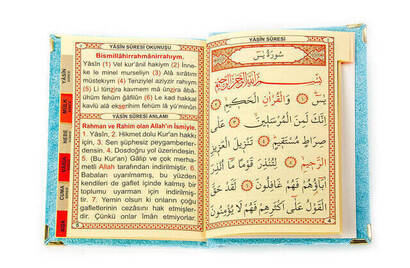 YÂSÎN SÛRESİ OKUNUŞU
Bismillâhirrahmânirrahıym.
Yâsîn (1) Vel kur'ânil hakiym (2) İnne-
ke le minel murseliyn (3) Alâ sırâtın
müstekıym (4) Tenziylel aziyzir rahıym
(5) Li tünzira kavmem mâ ünzira âbâ-
ühüm fehüm ğâfilûn (6) Le kad hakkal
kavlü alâ ekserihim fehüm lâ yü'minûn (7)
YÂSÎN SÛRESİ ANLAMI
Rahman ve Rahim olan Allah'ın İsmiyle.
1. Yâsîn, 2. Hikmet dolu Kur'an hakkı
için, 3. Sen şüphesiz peygamberler-
densin. 4. Dosdoğru yol üzerindesin.
5. (Bu Kur'an) Gâlip ve çok merha-
metli Allah tarafından indirilmiştir. 6.
Babaları uyarılmamış, bu yüzden
kendileri de gaflet içinde kalmış bir
toplumu uyarman için indirilmiş-
tir. 7. Yemin olsun ki onların çoğu
gafletlerinin cezasını hak etmişler-
dir. Çünkü onlar îman etmiyorlar.
YÂSİN
MÜLK
NEBE
CUMA
YÂSÎN SÛRESİ
سُورَةُ يٰسٓ
بِسْمِ اللّٰهِ الرَّحْمٰنِ الرَّحِيمِ
يٰسٓ ﴿١﴾ وَالْقُرْاٰنِ الْحَكِيمِ ﴿٢﴾
اِنَّكَ لَمِنَ الْمُرْسَلِينَ ﴿٣﴾ عَلٰى
صِرَاطٍ مُسْتَقِيمٍ ﴿٤﴾ تَنْزِيلَ الْعَزِيزِ
الرَّحِيمِ ﴿٥﴾ لِتُنْذِرَ قَوْمًا مَٓا اُنْذِرَ
اٰبَٓاؤُهُمْ فَهُمْ غَافِلُونَ ﴿٦﴾ لَقَدْ حَقَّ
الْقَوْلُ عَلٰٓى اَكْثَرِهِمْ فَهُمْ لَا يُؤْمِنُونَ